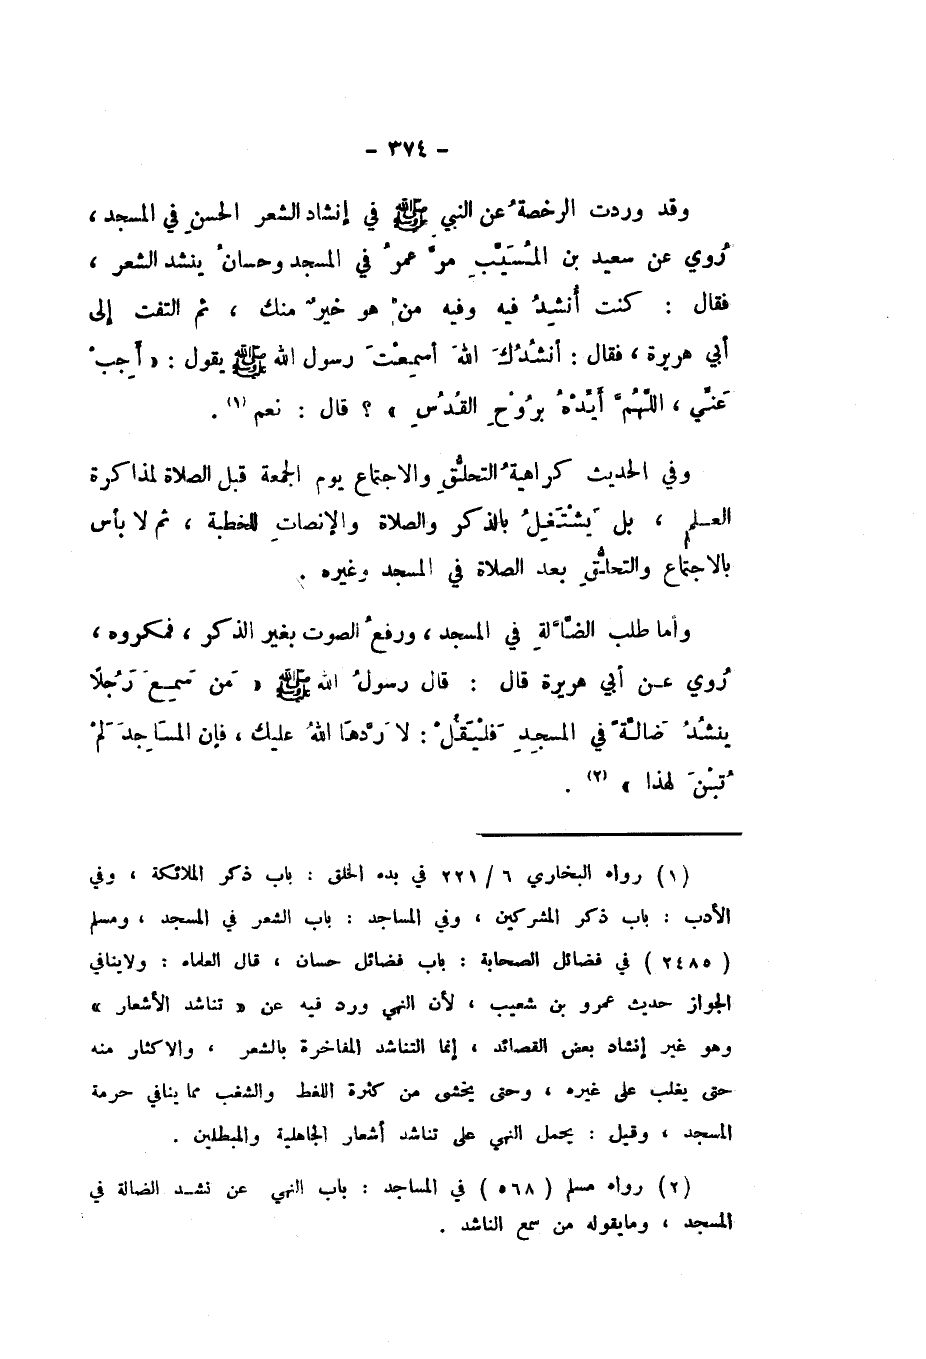 - ٣٧٤ -
وقد وردت الرخصةُ عن النبيِ ﷺ في إنشاد الشعر الحسنِ في المسجد ،
رُوي عن سعيد بن المُسَيَّبِ مرَّ عمرُ في المسجد وحسانُ ينشد الشعر ،
فقال : كنت أُنشِدُ فيه وفيه منْ هو خيرٌ منك ، ثم التفت إلى
أبي هريرة ، فقال : أنشُدُكَ اللهَ أسمِعْتَ رسول الله ﷺ يقول : « أَجِبْ
عَنِّي ، اللَّهُمَّ أَيِّدْهُ بِرُوْحِ القُدُسِ » ؟ قال : نعم (١) .
وفي الحديث كراهيةُ التحلُّقِ والاجتماع يوم الجمعة قبل الصلاة لمذاكرة
العـلم ، بل يَشْتَغِلُ بالذكر والصلاة والإنصاتِ للخطبة ، ثم لا بأس
بالاجتماع والتحلُّقِ بعد الصلاة في المسجد وغيره .
وأما طلب الضَّالةِ في المسجد ، ورفعُ الصوت بغير الذكر ، فمكروه ،
رُوي عـن أبي هريرة قال : قال رسولُ الله ﷺ « مَن سَمِـعَ رَجُلًا
ينشُدُ ضَالَّةً في المسجدِ فَلْيَقُلْ : لا رَدَّها اللهُ عليك ، فإن المسَاجِدَ لَمْ
تُبْنَ لهذا » (٢) .
(١) رواه البخاري ٦ / ٢٢١ في بدء الخلق : باب ذكر الملائكة ، وفي
الأدب : باب ذكر المشركين ، وفي المساجد : باب الشعر في المسجد ، ومسلم
( ٢٤٨٥ ) في فضائل الصحابة : باب فضائل حسان ، قال العلماء : ولاينافي
الجواز حديث عمرو بن شعيب ، لأن النهي ورد فيه عن « تناشد الأشعار »
وهو غير إنشاد بعض القصائد ، إنما التناشد المفاخرة بالشعر ، والاكثار منه
حتى يغلب على غيره ، وحتى يخشى من كثرة اللغط والشغب مما ينافي حرمة
المسجد ، وقيل : يحمل النهي على تناشد أشعار الجاهلية والمبطلين .
(٢) رواه مسلم ( ٥٦٨ ) في المساجد : باب النهي عن نشـد الضالة في
المسجد ، ومايقوله من سمع الناشد .